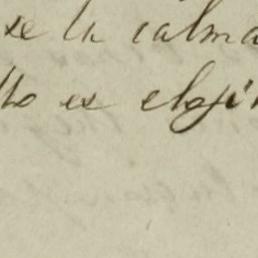 se la calma
llo es eloji